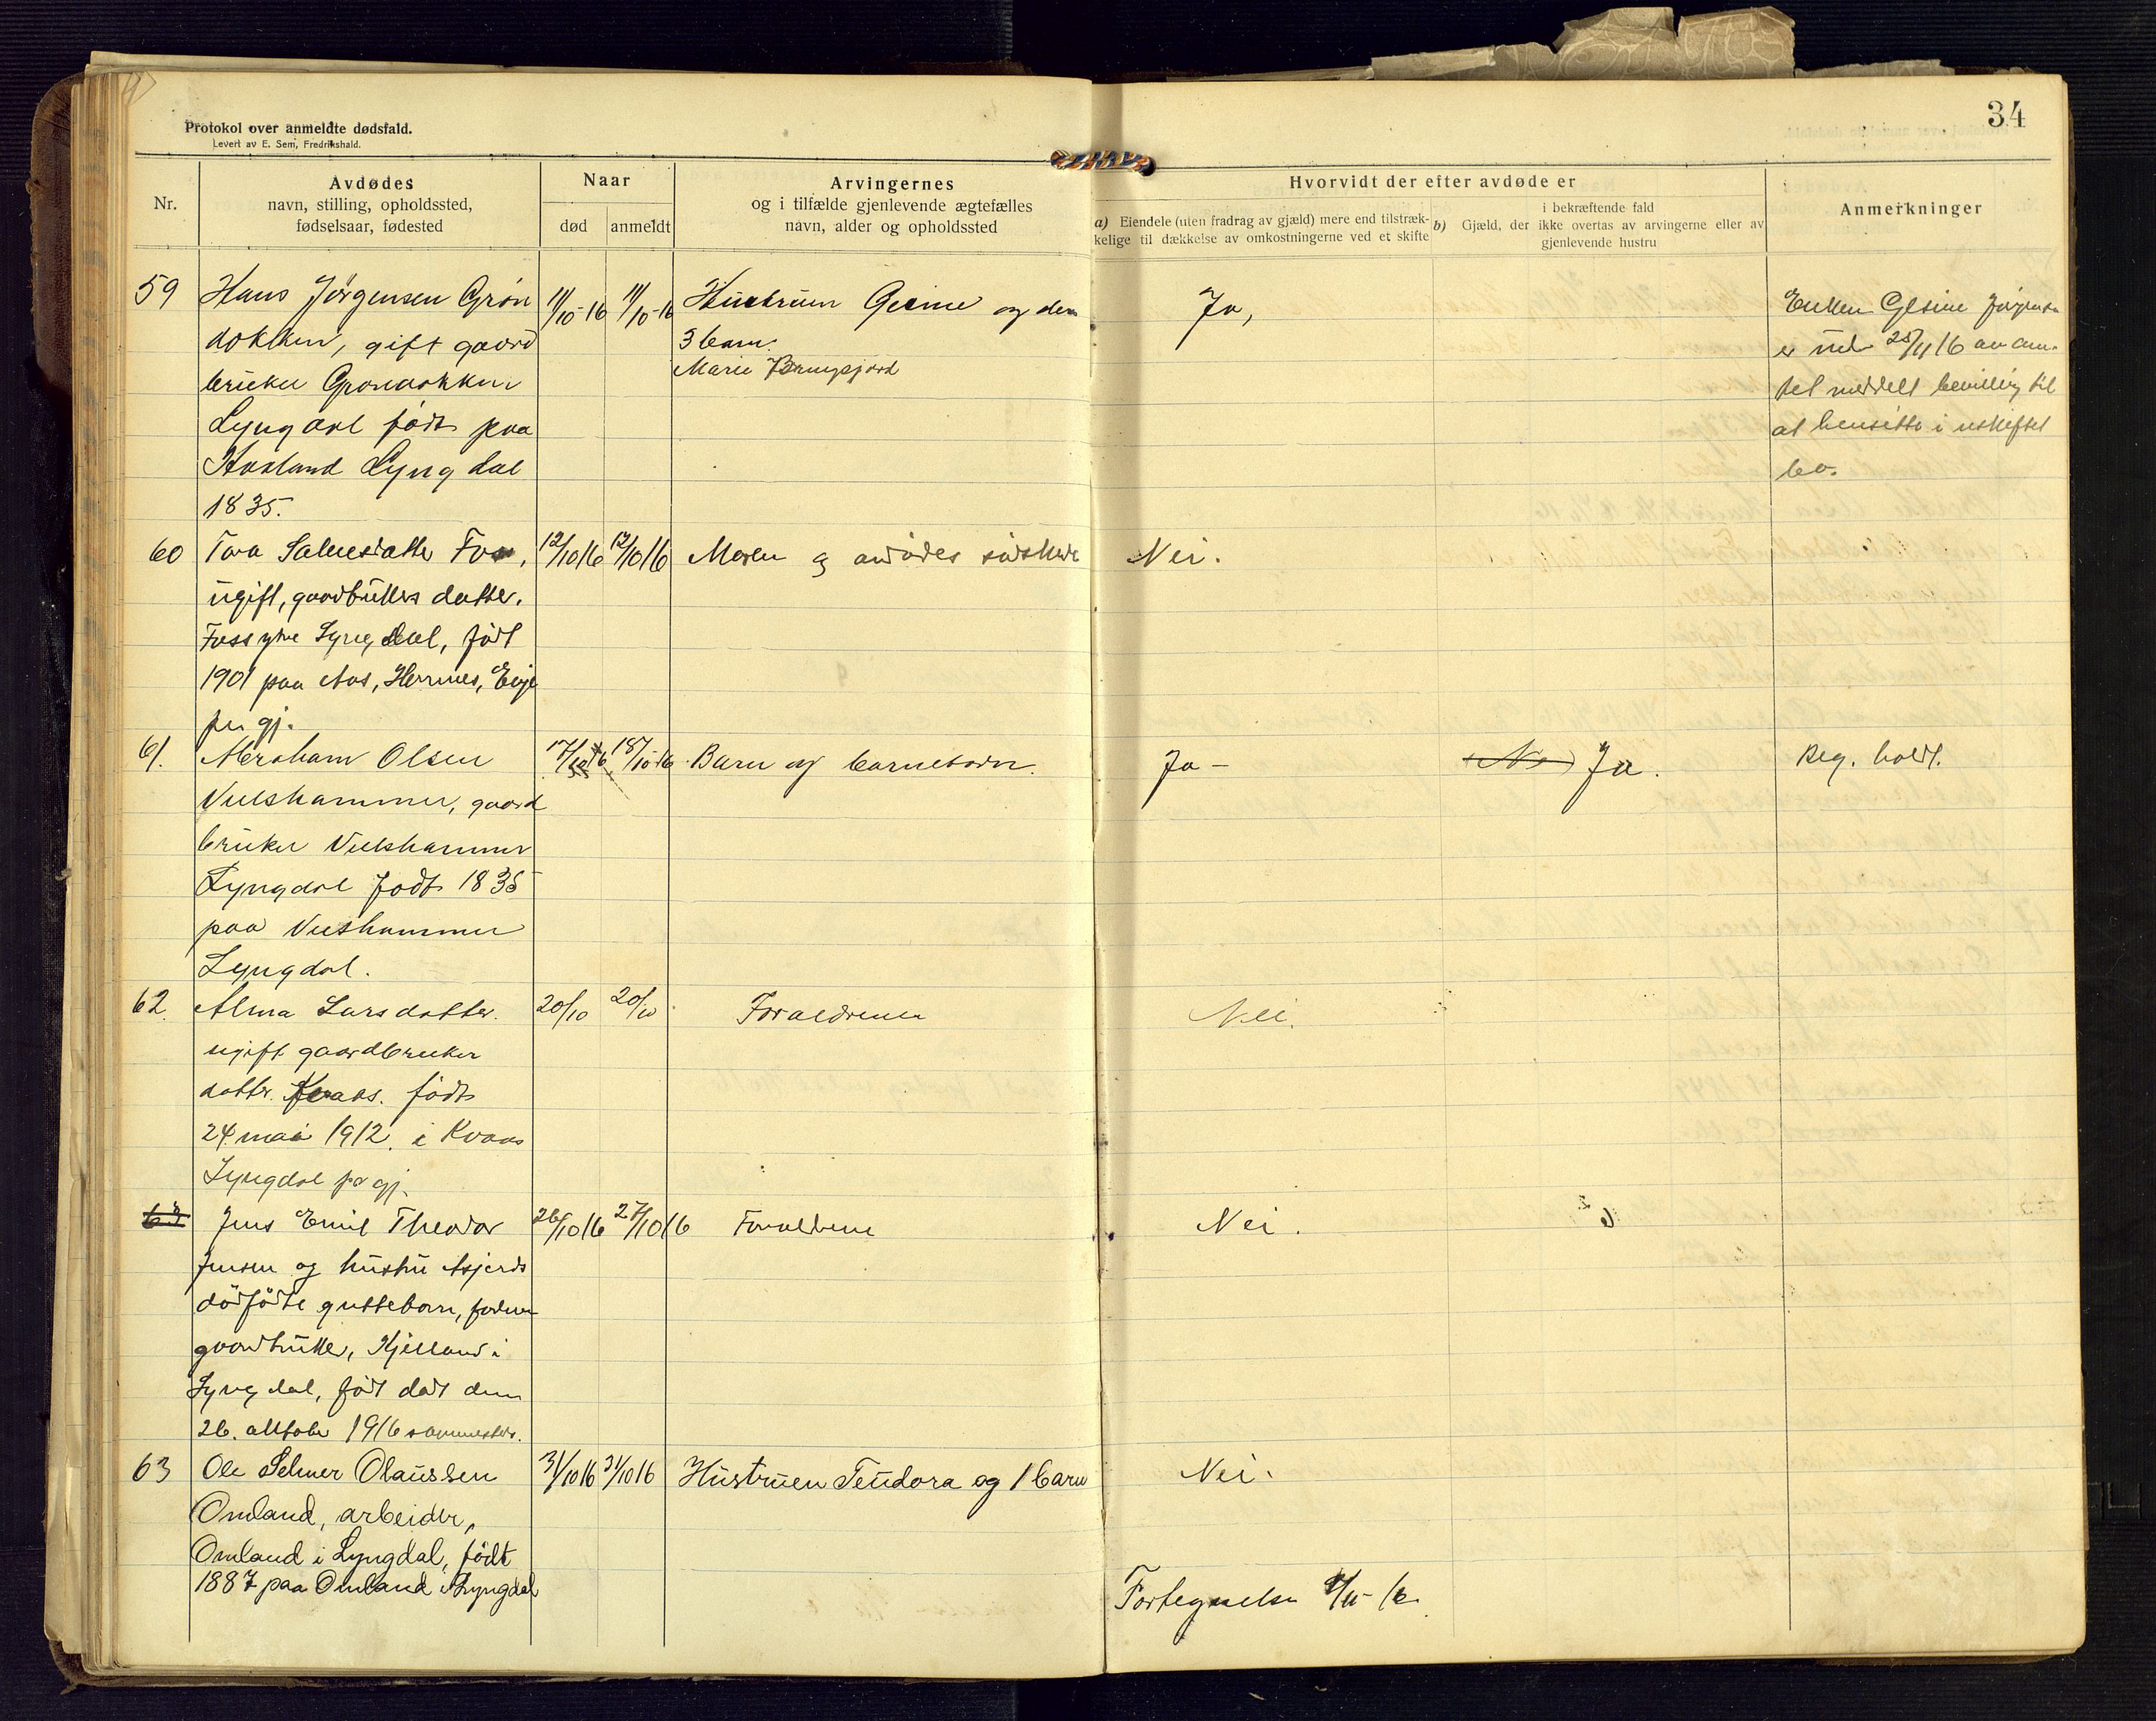 34
Protokol over anmeldte dødsfald.
Levert av E. Sem, Fredrikshald.
Nr.
Avdødes
navn, stilling, opholdssted,
fødselsaar, fødested
Naar
død
anmeldt
Arvingernes
og i tilfælde gjenlevende ægtefælles
navn, alder og opholdssted
Hvorvidt der efter avdøde er
a) Eiendele (uten fradrag av gjæld) mere end tilstræk-
kelige til dækkelse av omkostningerne ved et skifte
b) Gjæld, der ikke overtas av arvingerne eller av
i bekræftende fald
gjenlevende hustru
Anmerkninger
59
Hans Jørgensen Grøn
dokken, gift gaard
bruker Grøndokken
Lyngdal født paa
Lyngdal
1835.
11/10-16
11/10-16
Hustruen og dem
3 barn.
Marie
Ja,
Enken Gesine Jørgensen
er und. 25/11 16 av am-
tet meddelt bevilling til
at hensitte i uskiftet
bo.
60
Tora
ugift, gaardbrukers datter,
Lyngdal, født
1901 paa
pr. gj.
12/10 16
12/10 16
Moren og avdødes søskende
Nei.
61.
Abraham Olsen
gaard
bruker
Lyngdal født 1835
paa
Lyngdal.
17/10 16
18/10-16
Barn og barnebarn.
Ja -
Ja.
Reg. holdt.
62.
Alma Larsdatter.
ugift gaardbruker
datter. Kvaas. født
24. mai 1912. i Kvaas
Lyngdal pr gj.
20/10
20/10
Forældrene
Nei.
63
Jens Emil Theodor
Jensen og hustru Asjerds
dødfødte guttebarn, faderen
gaardbruker, Kjelland i
Lyngdal, født død den
26. oktober 1916 sammesteds.
26/10 16
27/10 16
Forældrene
Nei.
63
Ole Selmer Olaussen
Omland, arbeider,
Omland i Lyngdal, født
1887 paa Omland i Lyngdal
31/10 16
31/10 16
Hustruen Teudora og 1 barn
Nei.
Fortegnelse